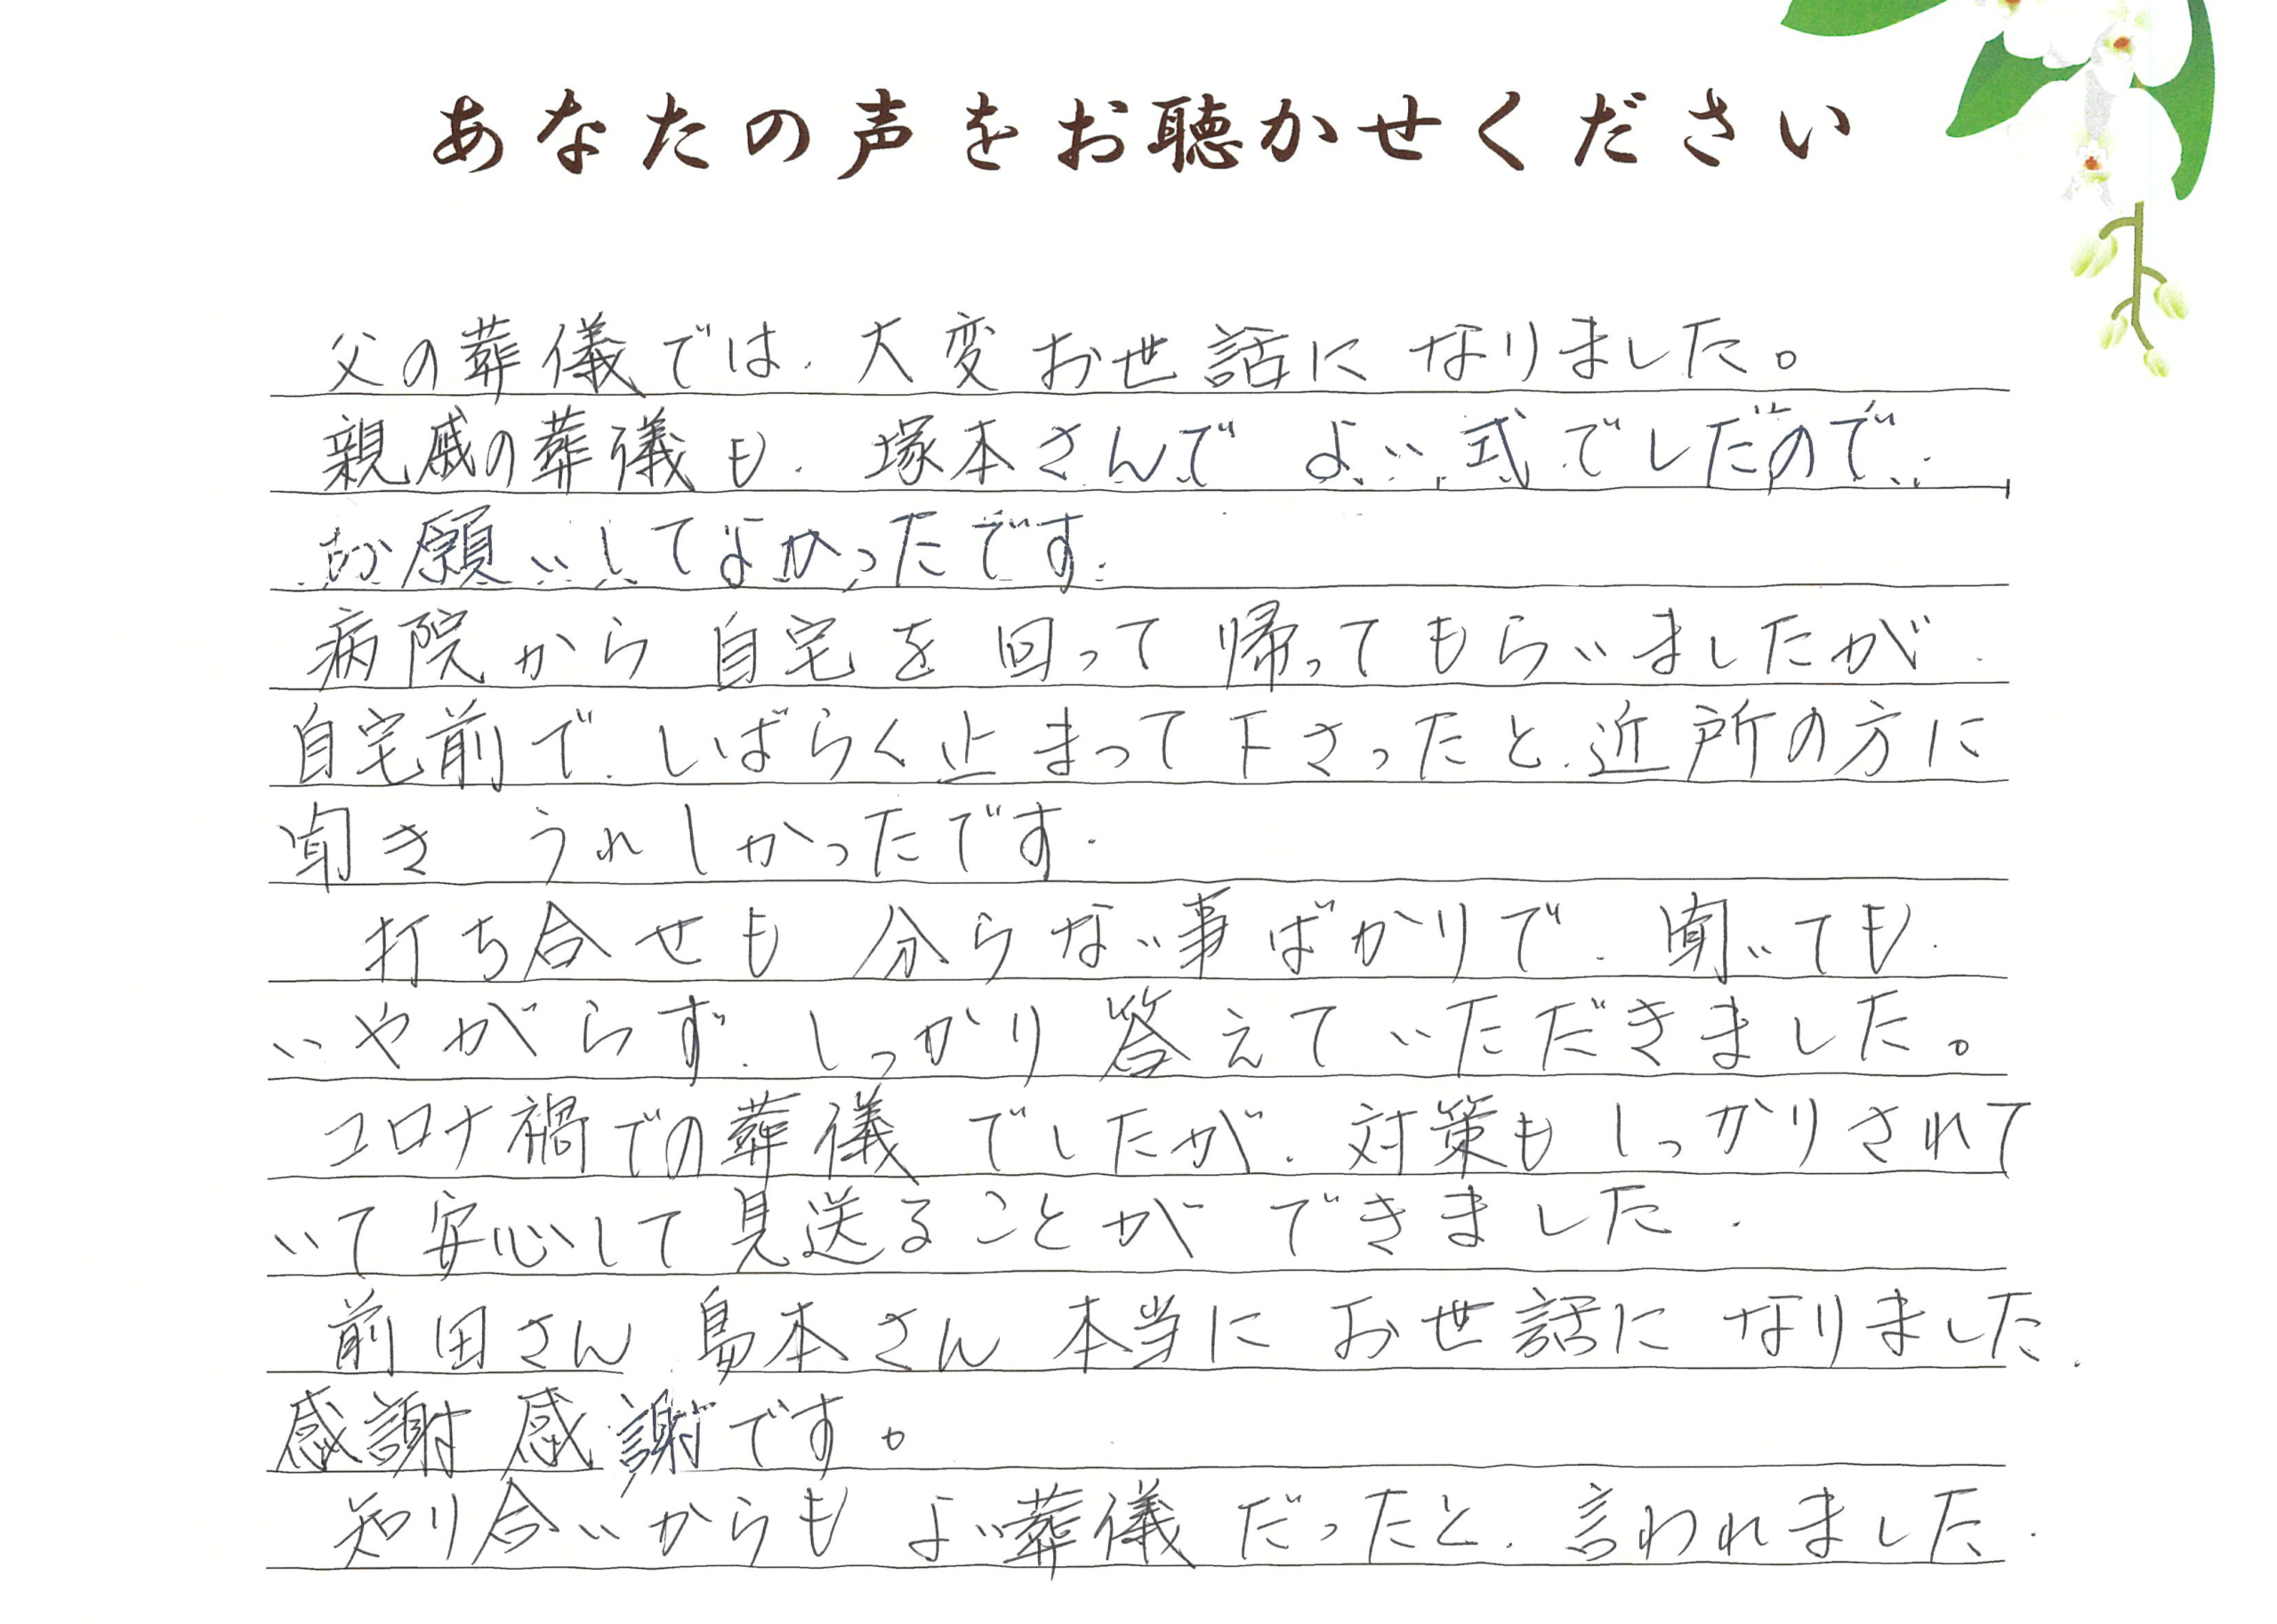 あなたの声をお聴かせください
父の葬儀では、大変お世話になりました。
親戚の葬儀も、塚本さんでよい式でしたので、
お願いしてよかったです。
病院から自宅を回って帰ってもらいましたが、
自宅前で、しばらく止まって下さったと、近所の方に
聞きうれしかったです。
打ち合せも分らない事ばかりで、聞いても、
いやがらず、しっかり答えていただきました。
コロナ禍での葬儀でしたが、対策もしっかりされて
いて安心して見送ることができました。
前田さん、島本さん本当にお世話になりました。
感謝感謝です。
知り合いからもよい葬儀だったと、言われました。